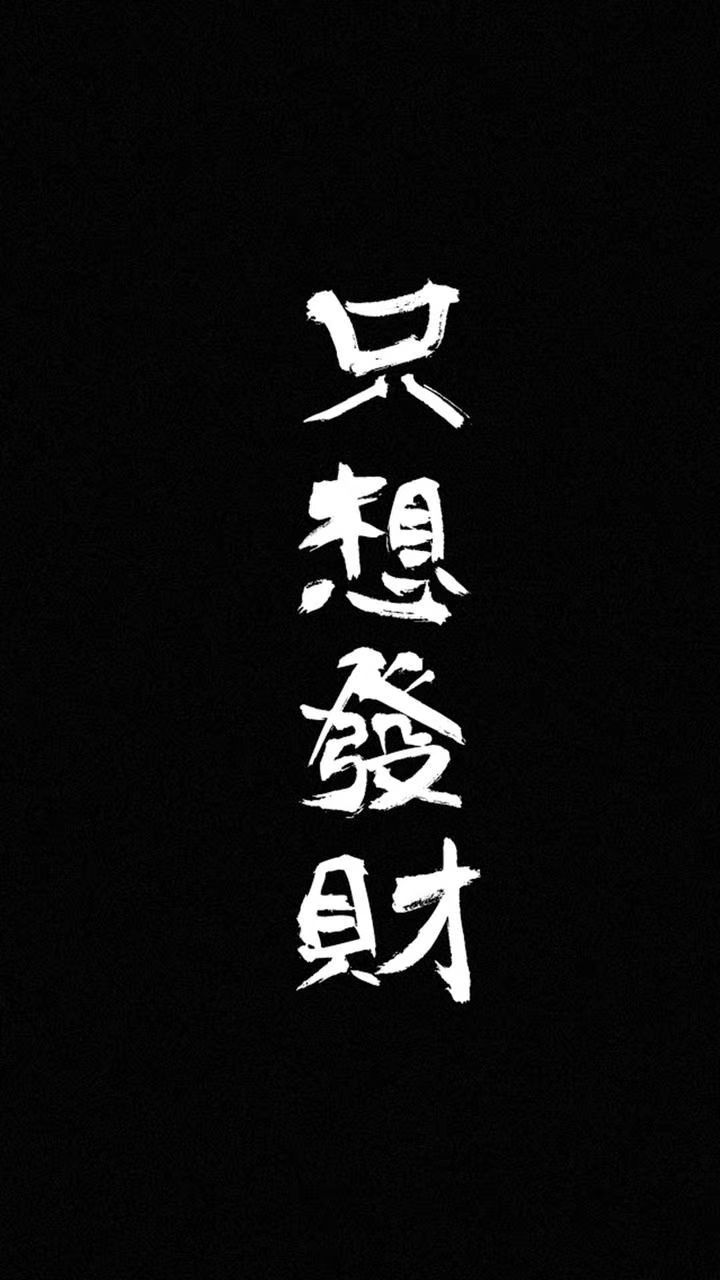 只想發財